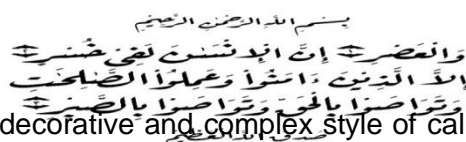 بِسْمِ اللَّهِ الرَّحْمَٰنِ الرَّحِيمِ
وَالْعَصْرِ إِنَّ الْإِنْسَانَ لَفِي خُسْرٍ
إِلَّا الَّذِينَ ءَامَنُوا وَعَمِلُوا الصَّالِحَاتِ
وَتَوَاصَوْا بِالْحَقِّ وَتَوَاصَوْا بِالصَّبْرِ
decorative and complex style of cal
صدق الله العظيم